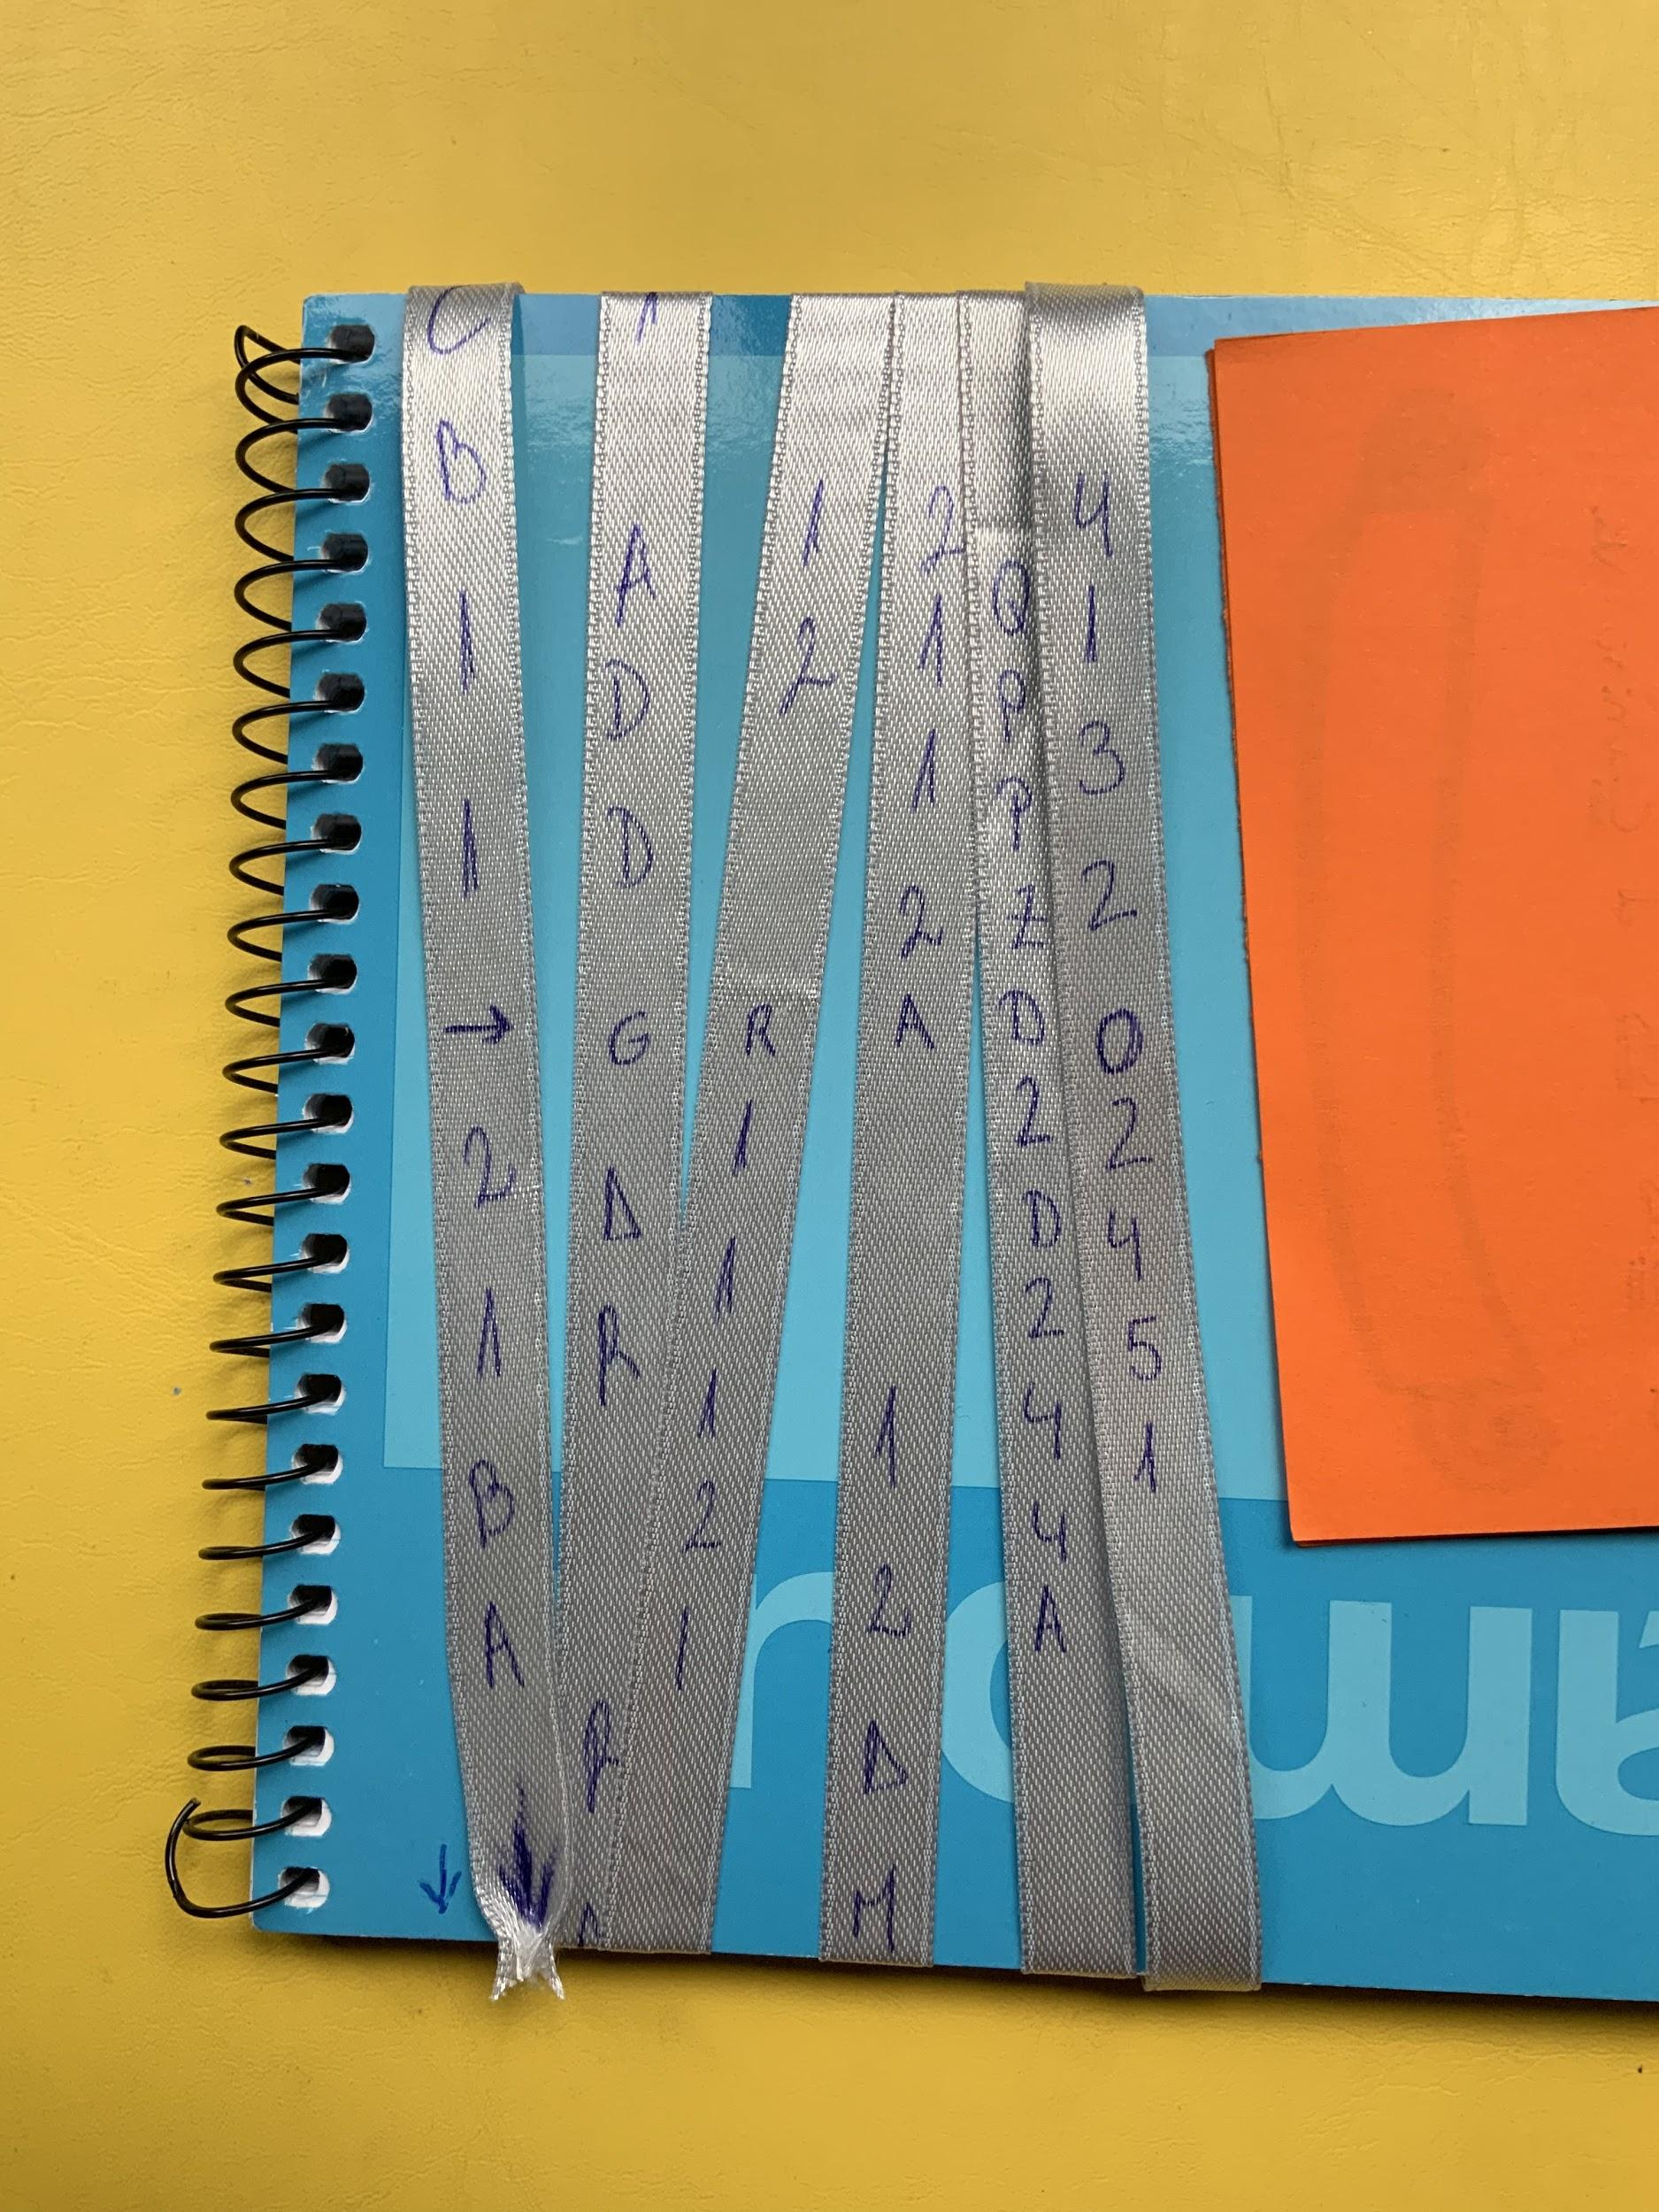 ↓
C B 1 1 → 2 1 B A ↓
1 A D D G D R R
1 2 R 1 1 1 2 1
2 1 1 2 A 1 2 D M
Q P P Z D 2 D 2 4 4 A
4 1 3 2 0 2 4 5 1